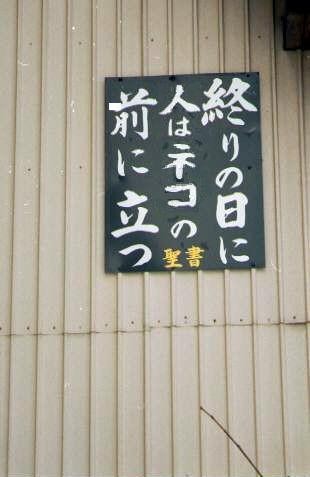 終りの日に
人はネコの
前に立つ
聖書